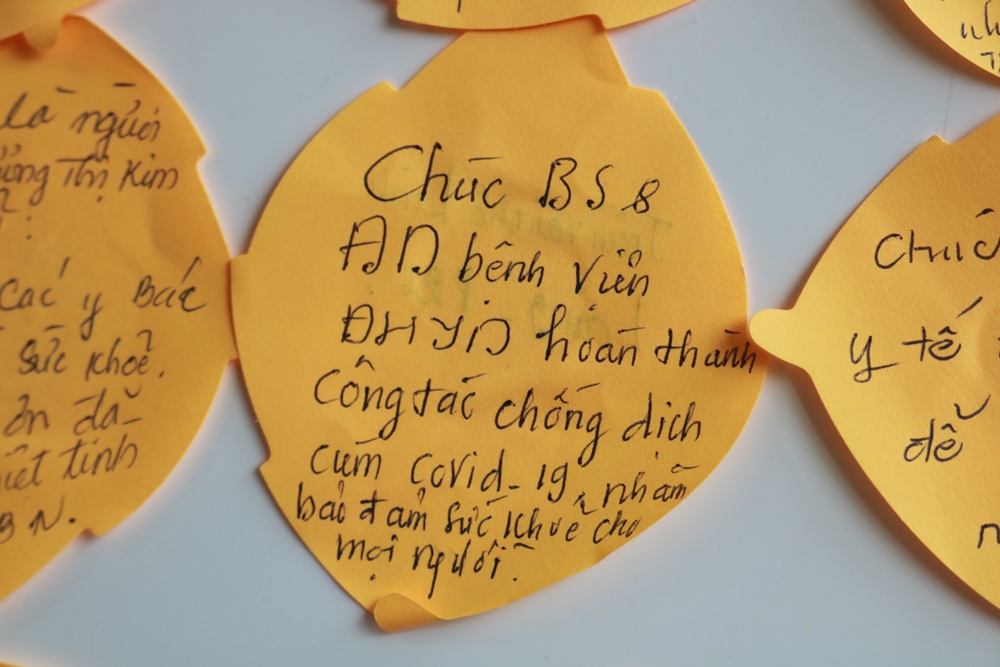 là người
Thị Kim
các y Bác
sức khỏe.
ơn đã
tình
N.
Chúc BS &
ĐD bệnh viện
ĐHYD hoàn thành
Công tác chống dịch
cúm Covid-19, nhằm
bảo đảm sức khoẻ cho
mọi người.
Chúc
y tế
để